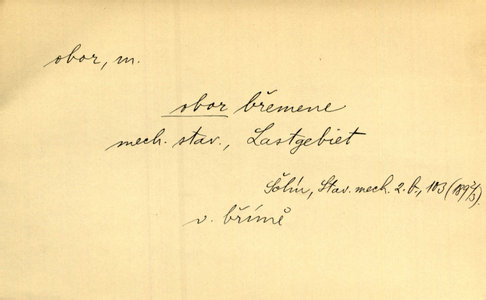 obor, m.
obor břemene
mech. stav., Lastgebiet
Šolín, Stav. mech. 2. b., 103 (1892/3).
v. břímě